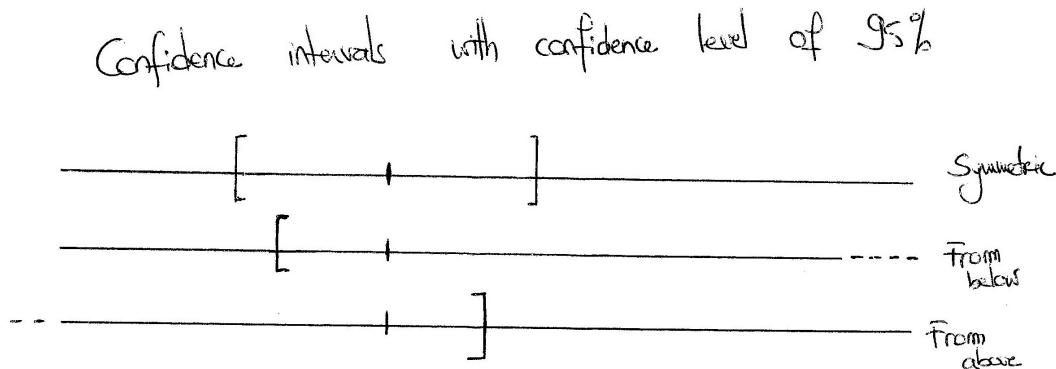 Confidence intervals with confidence level of 95%
Symmetric
From
below
From
above